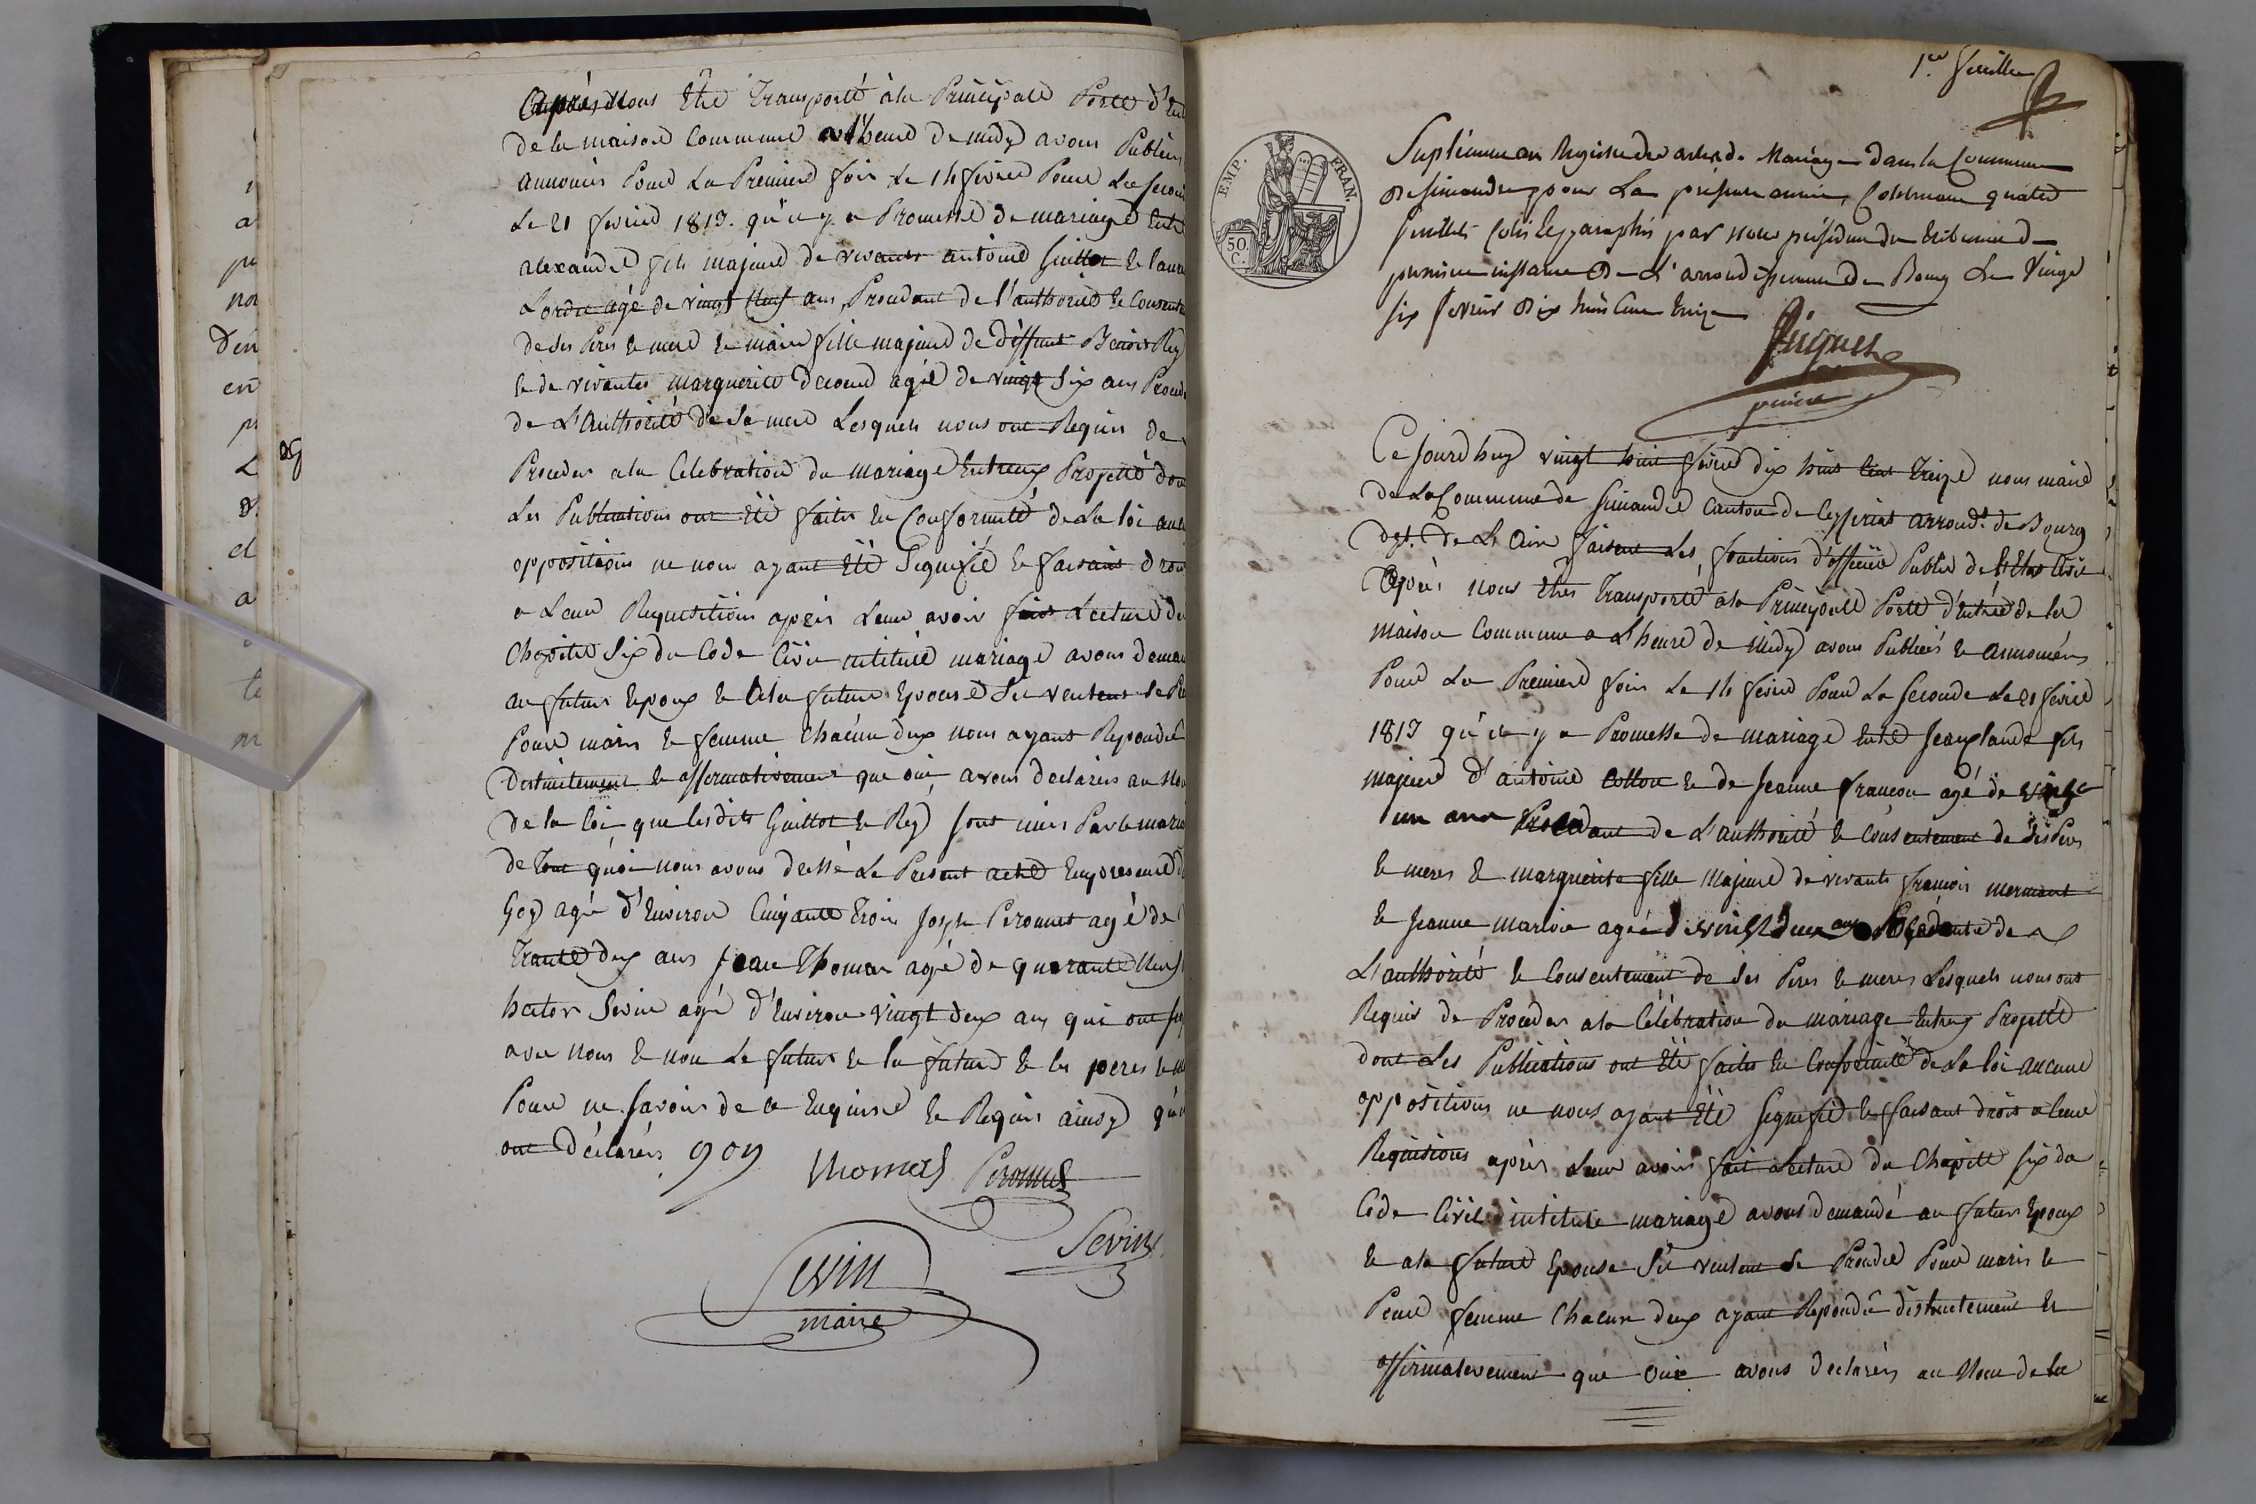 après nous être transporté à la principale porte d'en
de la maison commune a l'heure de midy avons publiés
annoncés pour la premiere fois le 14 fevrier pour la secon
le 21 fevrier 1813. qu'il y a promesse de mariage entre
alexandre fils majeure de vivants antoine Guillot et laur
agé de vingt neuf ans, procedant de l'authorité et consente
de ses peres et mere et marie fille majeure de deffunt Benoit Rey
et de vivantes marguerite agée de vingt six ans proced
de L'authorité de sa mere Lesquels nous ont requis de
proceder a la Celebration du mariage entreux projetté don
Les publications ont été faites en conformité de la loi auc
oppositions ne nous ayant été signifié et faisant droit
a leur requisitions après leur avoir fait lecture du
chapitre six du Code Civil intitulé mariage avons deman
au futur Epoux et a la future Epouse s'ils veulent se pre
pour maris et femme chacun deux nous ayant repondu
distinctement et affirmativement que oui avons declarés au nom
de la loi que lesdits Guillot et Rey sont unis par le maria
de tout quoi nous avons dressé le present acte en presence de
Goy agé d'environ cinqante trois Joseph Peronnet agé de
trante deux ans Jean Thomas agé de quarante neuf
hector Sevin agé d'environ vingt deux ans qui ont sig
avec nous et non le futur et la future et les peres et me
pour ne savoir de ce enquis et requis ainsy qu'i
ont déclarés goy Thomas Peronnet
Sevin
Sevin
maire
1er feuillet
Suplément au Registre des actes de Mariage dans la Commune
de simandre pour la présente année, Contenant quatre
feuillets cotés et paraphés par nous président du tribunal de
premiere instance de L'arrondissement de Bourg Le Vingt
six fevrier dix huit cent treize
EMP. FRAN.
50. C.
Ce jourd'huy vingt huit fevrier dix huit cent treize nous maire
de la Commune de simandre canton de Ceyzeriat arrond.t de Bourg
dpt. de L'ain faisant les fonctions d'officier public de l'état civil
après nous être transporté a la principale porte d'entrée de la
maison commune a l'heure de midy avons publiés et annoncés
pour la premiere fois le 14 fevrier pour la seconde le 21 fevrier
1813 qu'il y a promesse de mariage entre Jean claude fils
majeure d'antoine Cotton et de Jeanne françon agé de vingt
un ans procedant de l'authorité et consentement de ses peres
et meres et marguerite fille majeure de vivants françois mermant
et Jeanne agée de vingt deux ans procedante de
L'authorité et consentement de ses peres et meres Lesquels nous ont
requis de proceder a la célébration du mariage entreux projetté
dont Les publications ont été faites en conformité de la loi aucune
oppositions ne nous ayant été signifié et faisant droit a leur
requisitions après leur avoir fait lecture du chapitre six du
Code Civil intitulé mariage avons demandé au futur Epoux
et a la future Epouse s'ils veulent se prendre pour maris et
pour femme chacun deux ayant repondu distinctement et
affirmativement que oui avons declarés au nom de la